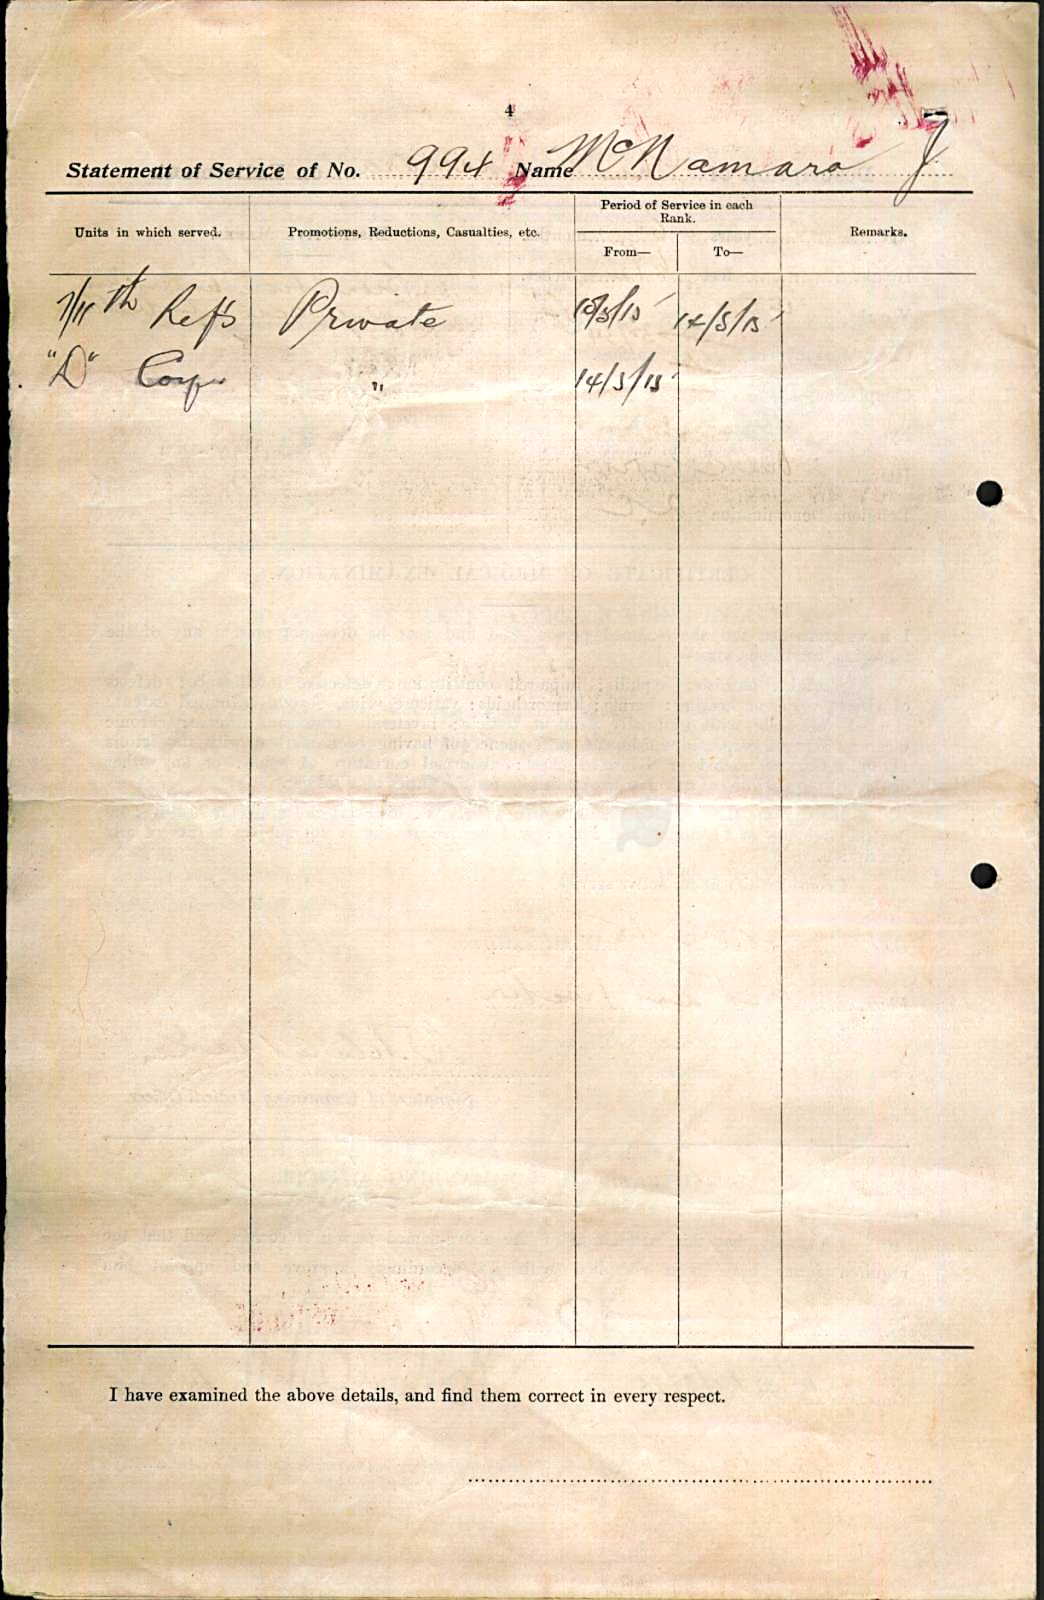 4
Statement of Service of No. 994 Name McNamara J
Units in which served. Promotions, Reductions, Casualties, etc. Period of Service in each Rank. From— To— Remarks.
7/11th Refs Private 10/5/15 14/5/15
"D" Coy " 14/5/15
I have examined the above details, and find them correct in every respect.